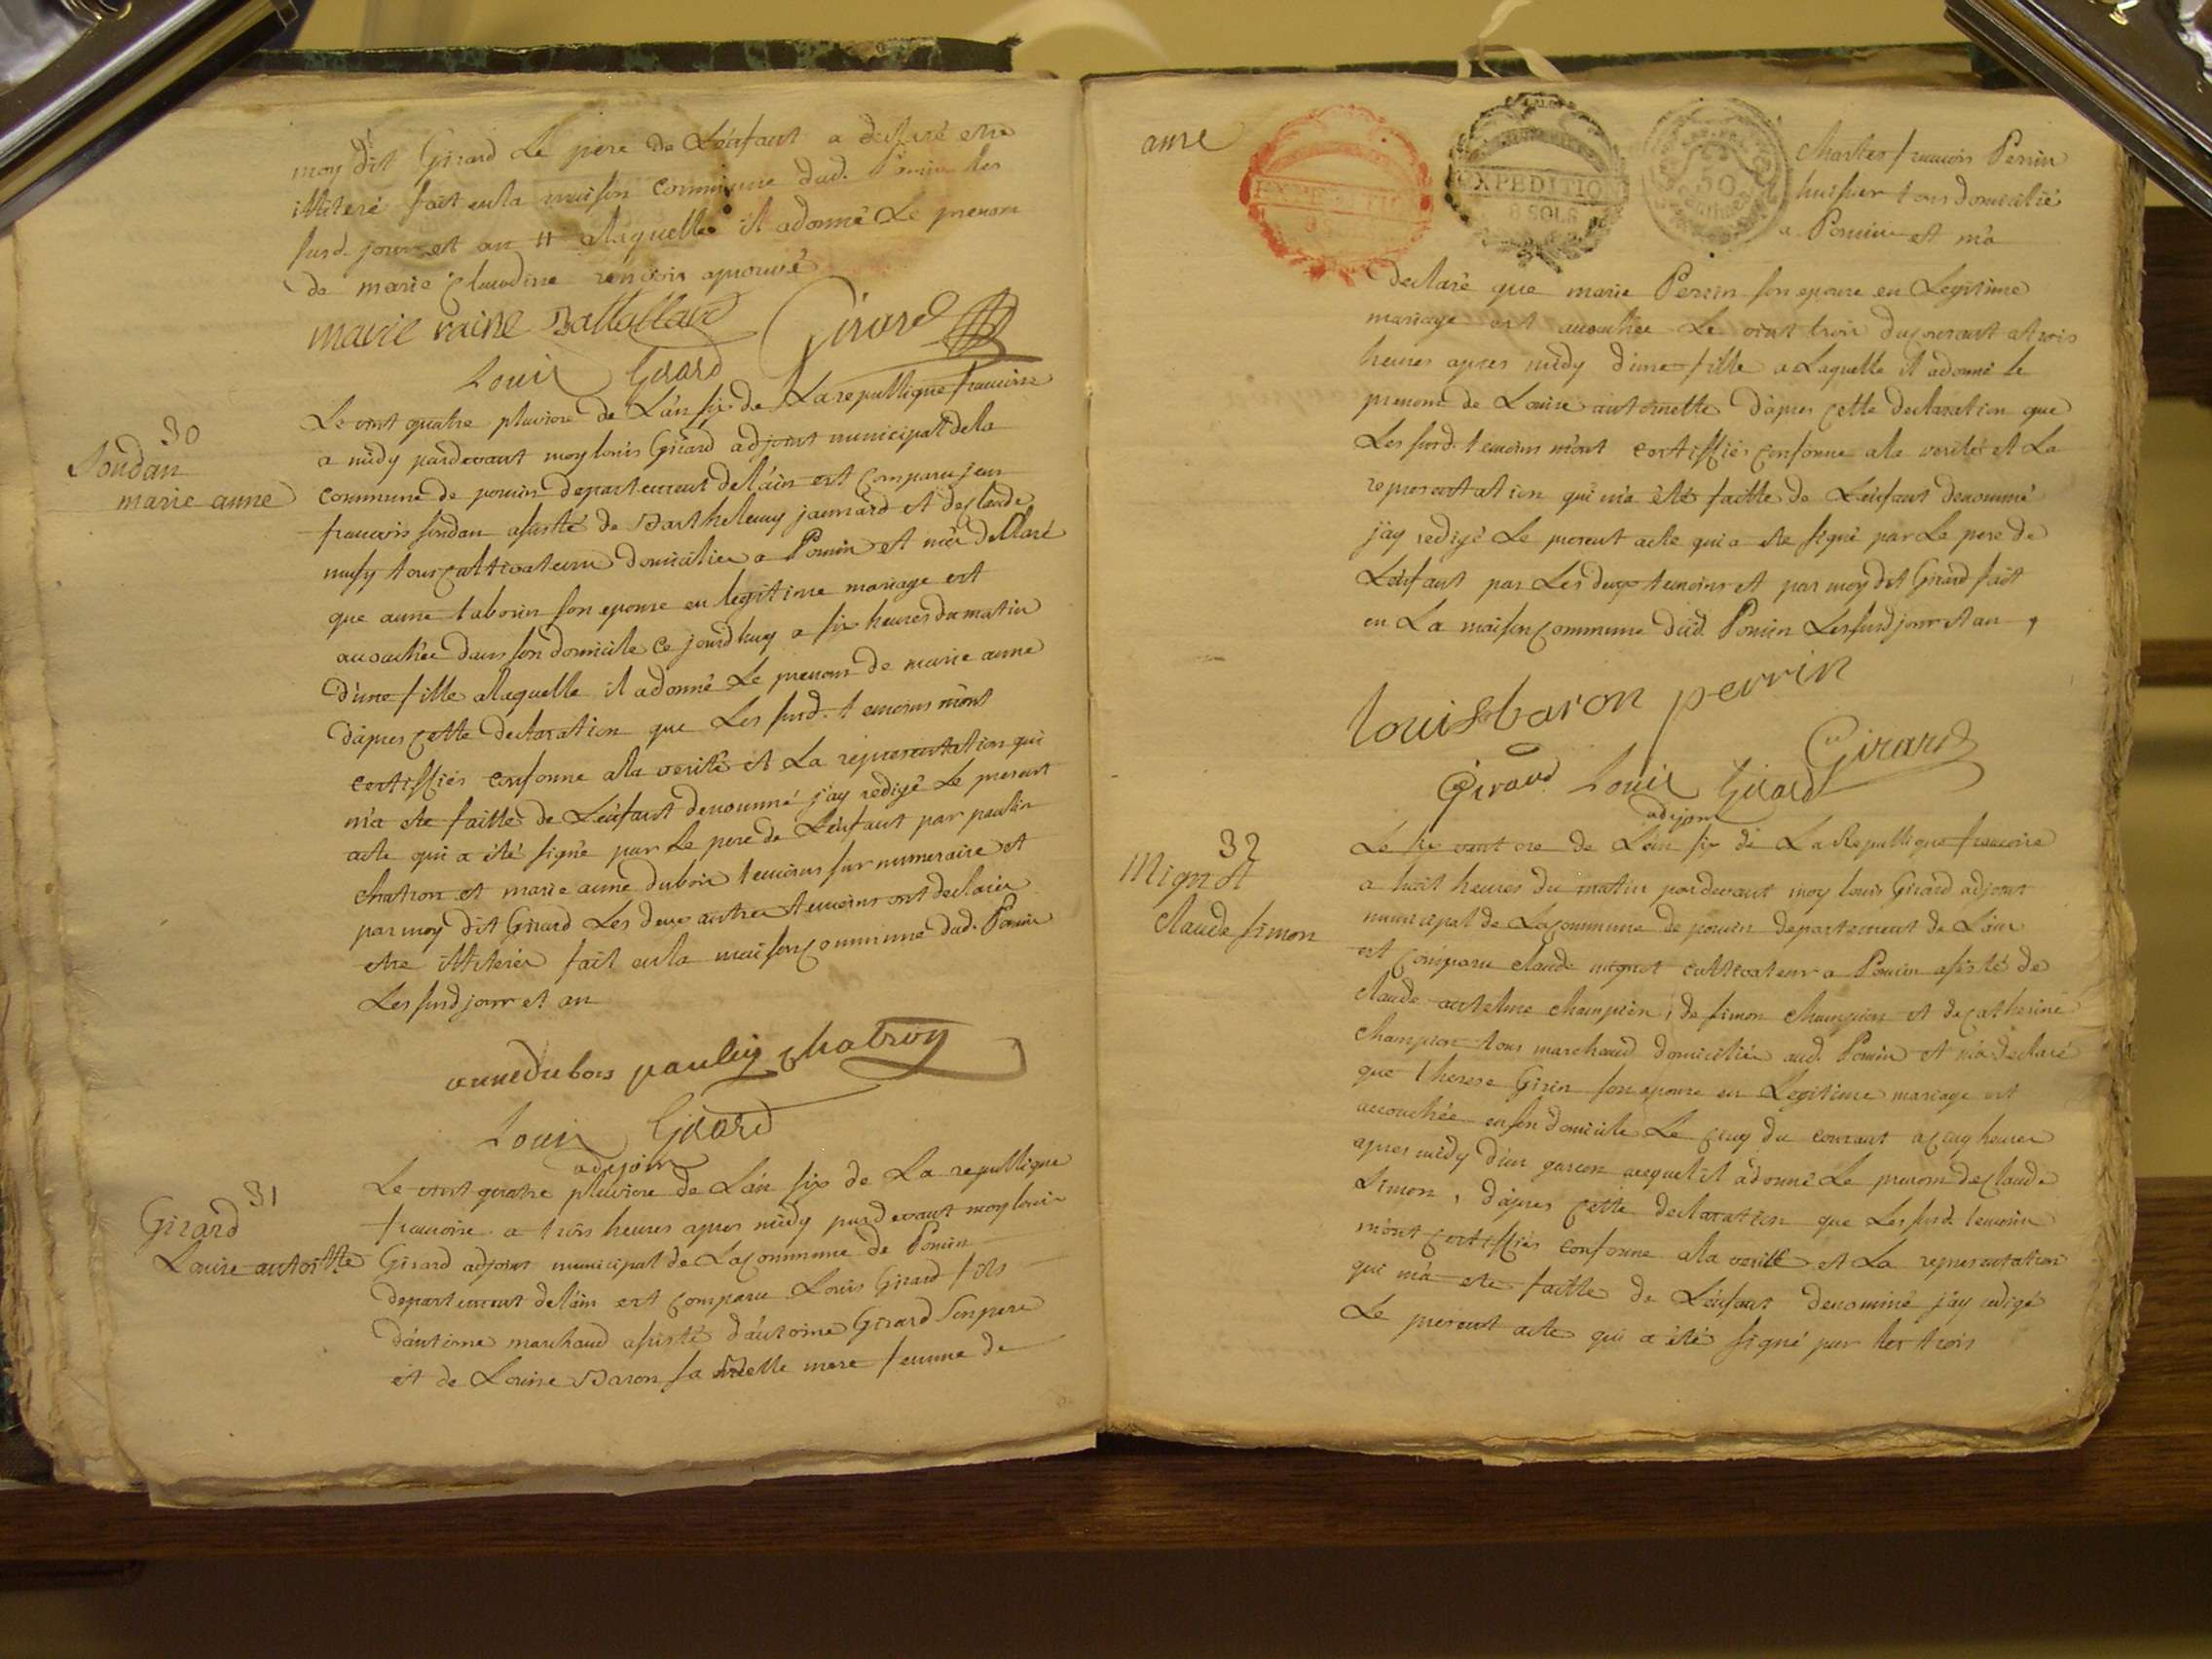 moy dit Girard Le pere de L'enfant a declaré etre
illiteré fait en la maison commune dud. Poncin les
susd. jour et an # alaquelle il a donné Le prenom
de marie Claudine renvoir aprouvé
marie raine Ballallard Girard
Louis Girard
30
Soudan
marie anne
Le vint quatre pluviose de L'an six de La republique francoise
a midy pardevant moy louis Girard adjoint municipal de la
commune de poncin departement de l'ain est comparu jean
francois soudan asisté de Barthelemy janard et de claude
musy tous cultivateurs domiciliés a Poncin et m'a declaré
que anne tabouin son epouse en legitime mariage est
acouchée dans son domicile ce jourdhuy a six heures du matin
d'une fille alaquelle il a donné Le prenom de marie anne
d'apres cette declaration que Les susd. temoins m'ont
certiffiés conforme ala verité et La representation qui
m'a ete faitte de L'enfant denommé j'ay redigé Le present
acte qui a été signé par Le pere de L'enfant par paulin
chatron et marie anne dubois temoins surnumeraire et
par moy dit Girard Les deux autres temoins ont declarés
etre illiterés fait en la maison commune dud. Poncin
Les susd jour et an
anne dubois paulin chatron
Louis Girard
adejoin
31
Girard
Louise antoitte
Le vint quatre pluviose de L'an six de La republique
francoise a trois heures apres midy pardevant moy louis
Girard adjoint municipal de La commune de Poncin
departement de l'ain est comparu Louis Girard fils
d'antoine marchand asisté d'antoine Girard Son pere
et de Louise Baron sa belle mere femme de
anne
EXPEDITION
EXPEDITION
8 SOLS
50
Charles francois Perrin
huissier tous domicilié
a Poncin et m'a
declaré que marie Perrin son epouse en Legitime
mariage est acouchée Le vint trois du courant a trois
heures apres midy d'une fille a Laquelle il a donné le
prenom de Louise antoinette d'apres cette declaration que
Les susd. temoins m'ont certiffiés conforme ala verité et La
representation qui m'a été faitte de L'enfant denommé
j'ay redigé Le present acte qui a ete signé par Le pere de
L'enfant par Les deux temoins et par moy dit Girard fait
en La maison commune dud. Poncin Les susd jour et an,
louise baron perrin
Girard
Girard Louis Girard
adejoin
32
Mignot
Claude simon
Le six vent ose de L'an six de La Republique francoise
a huit heures du matin pardevant moy louis Girard adjoint
municipal de La commune de poncin departement de L'ain
est comparu claude mignot cultivateur a Poncin asisté de
claude antelme champion, de simon champion et de catherine
champion tous marchand domiciliés aud. Poncin et m'a declaré
que therese Girin son epouse en Legitime mariage est
acouchée en son domicile Le cinq du courant a cinq heures
apres midy d'un garcon auquel il a donné Le prenom de claude
Simon, d'apres cette declaration que Les susd. temoins
m'ont certiffiés conforme ala verité et La representation
qui m'a ete faitte de L'enfant denommé j'ay redigé
Le present acte qui a été signé par les trois